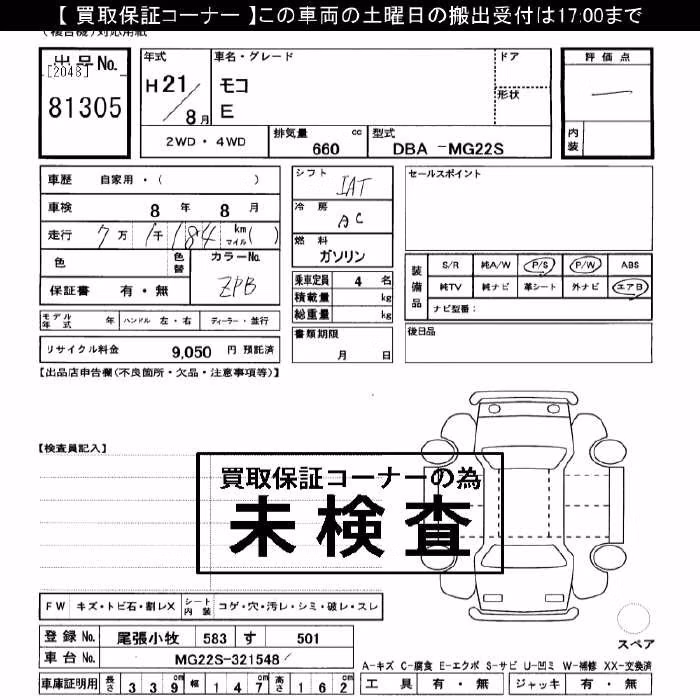 【 買取保証コーナー 】この車両の土曜日の搬出受付は17:00まで
(複合機)対応用紙
出品No.
[2048]
81305
年式
H21／8月
車名・グレード
モコ
E
ドア
形状
評価点
―
内装
2WD・4WD
排気量 cc
660
型式
DBA -MG22S
車歴 自家用・( )
車検 8年 8月
走行 7万1千184 km マイル( )
色
色替
カラーNo.
ZPB
保証書 有・無
シフト
IAT
冷房
AC
燃料
ガソリン
乗車定員 4 名
積載量 kg
総重量 kg
書類期限
月 日
セールスポイント
装備品
S/R 純A/W P/S P/W ABS
純TV 純ナビ 革シート 外ナビ エアB
ナビ型番:
後日品
モデル年式 年 ハンドル 左・右 ディーラー・並行
リサイクル料金 9,050 円 預託済
【出品店申告欄(不良箇所・欠品・注意事項等)】
【検査員記入】
買取保証コーナーの為
未検査
FW キズ・トビ石・割レX シート内装 コゲ・穴・汚レ・シミ・破レ・スレ
登録No. 尾張小牧 583 す 501
車台No. MG22S-321548
車庫証明用 長さ 339cm 幅 147cm 高さ 162cm
スペア
A-キズ C-腐食 E-エクボ S-サビ U-凹ミ W-補修 XX-交換済
工具 有・無 ジャッキ 有・無